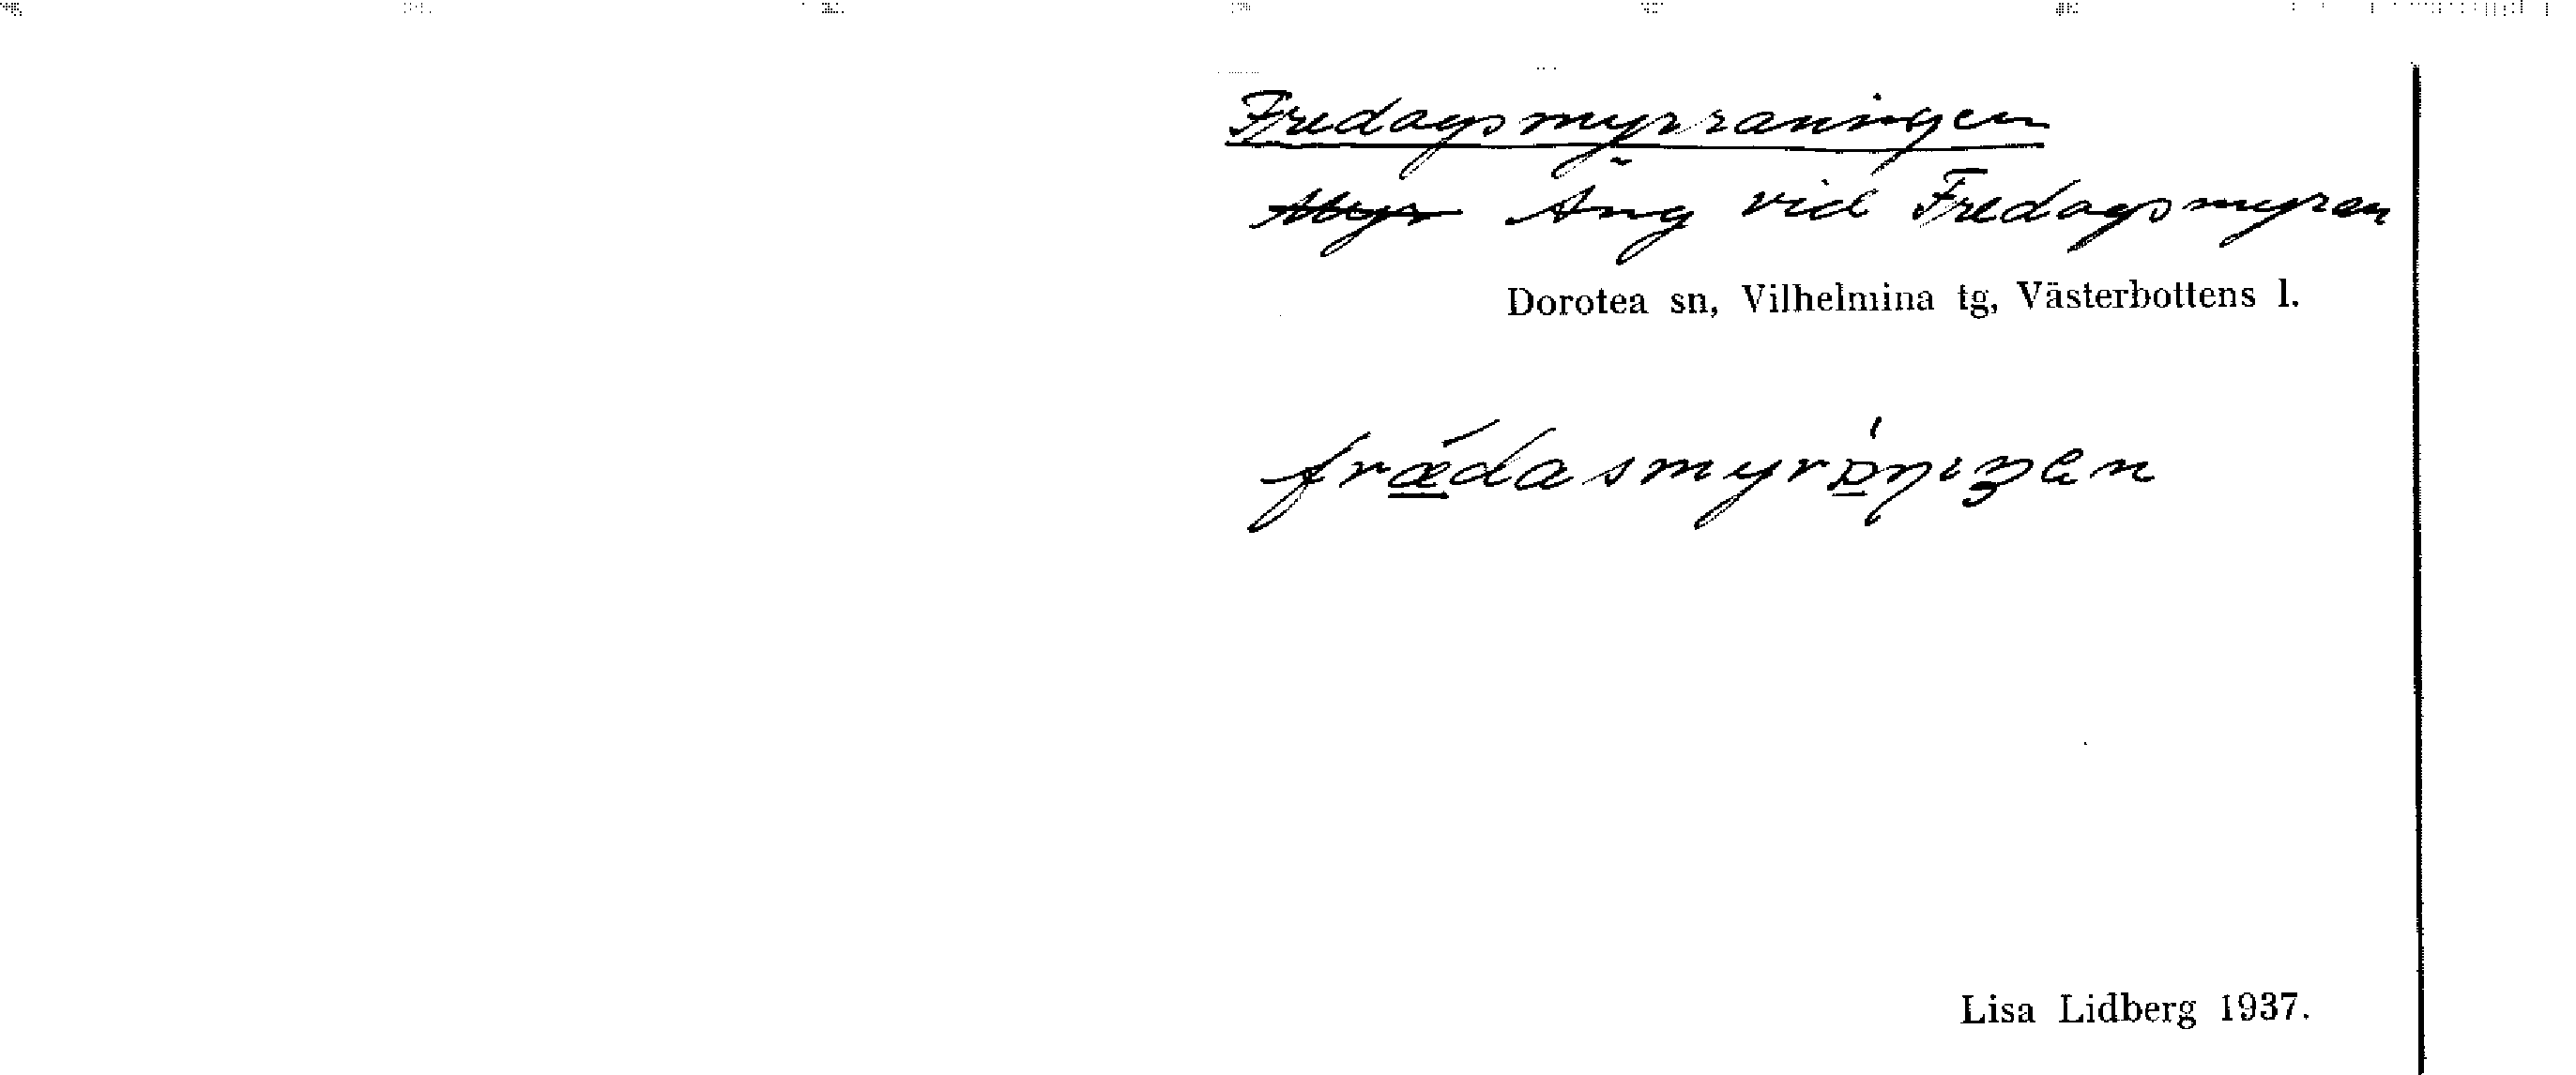 Fredagsmyrraningen
Myr Äng vid Fredagsmyren
Dorotea sn, Vilhelmina tg, Västerbottens l.
Lisa Lidberg 1937.